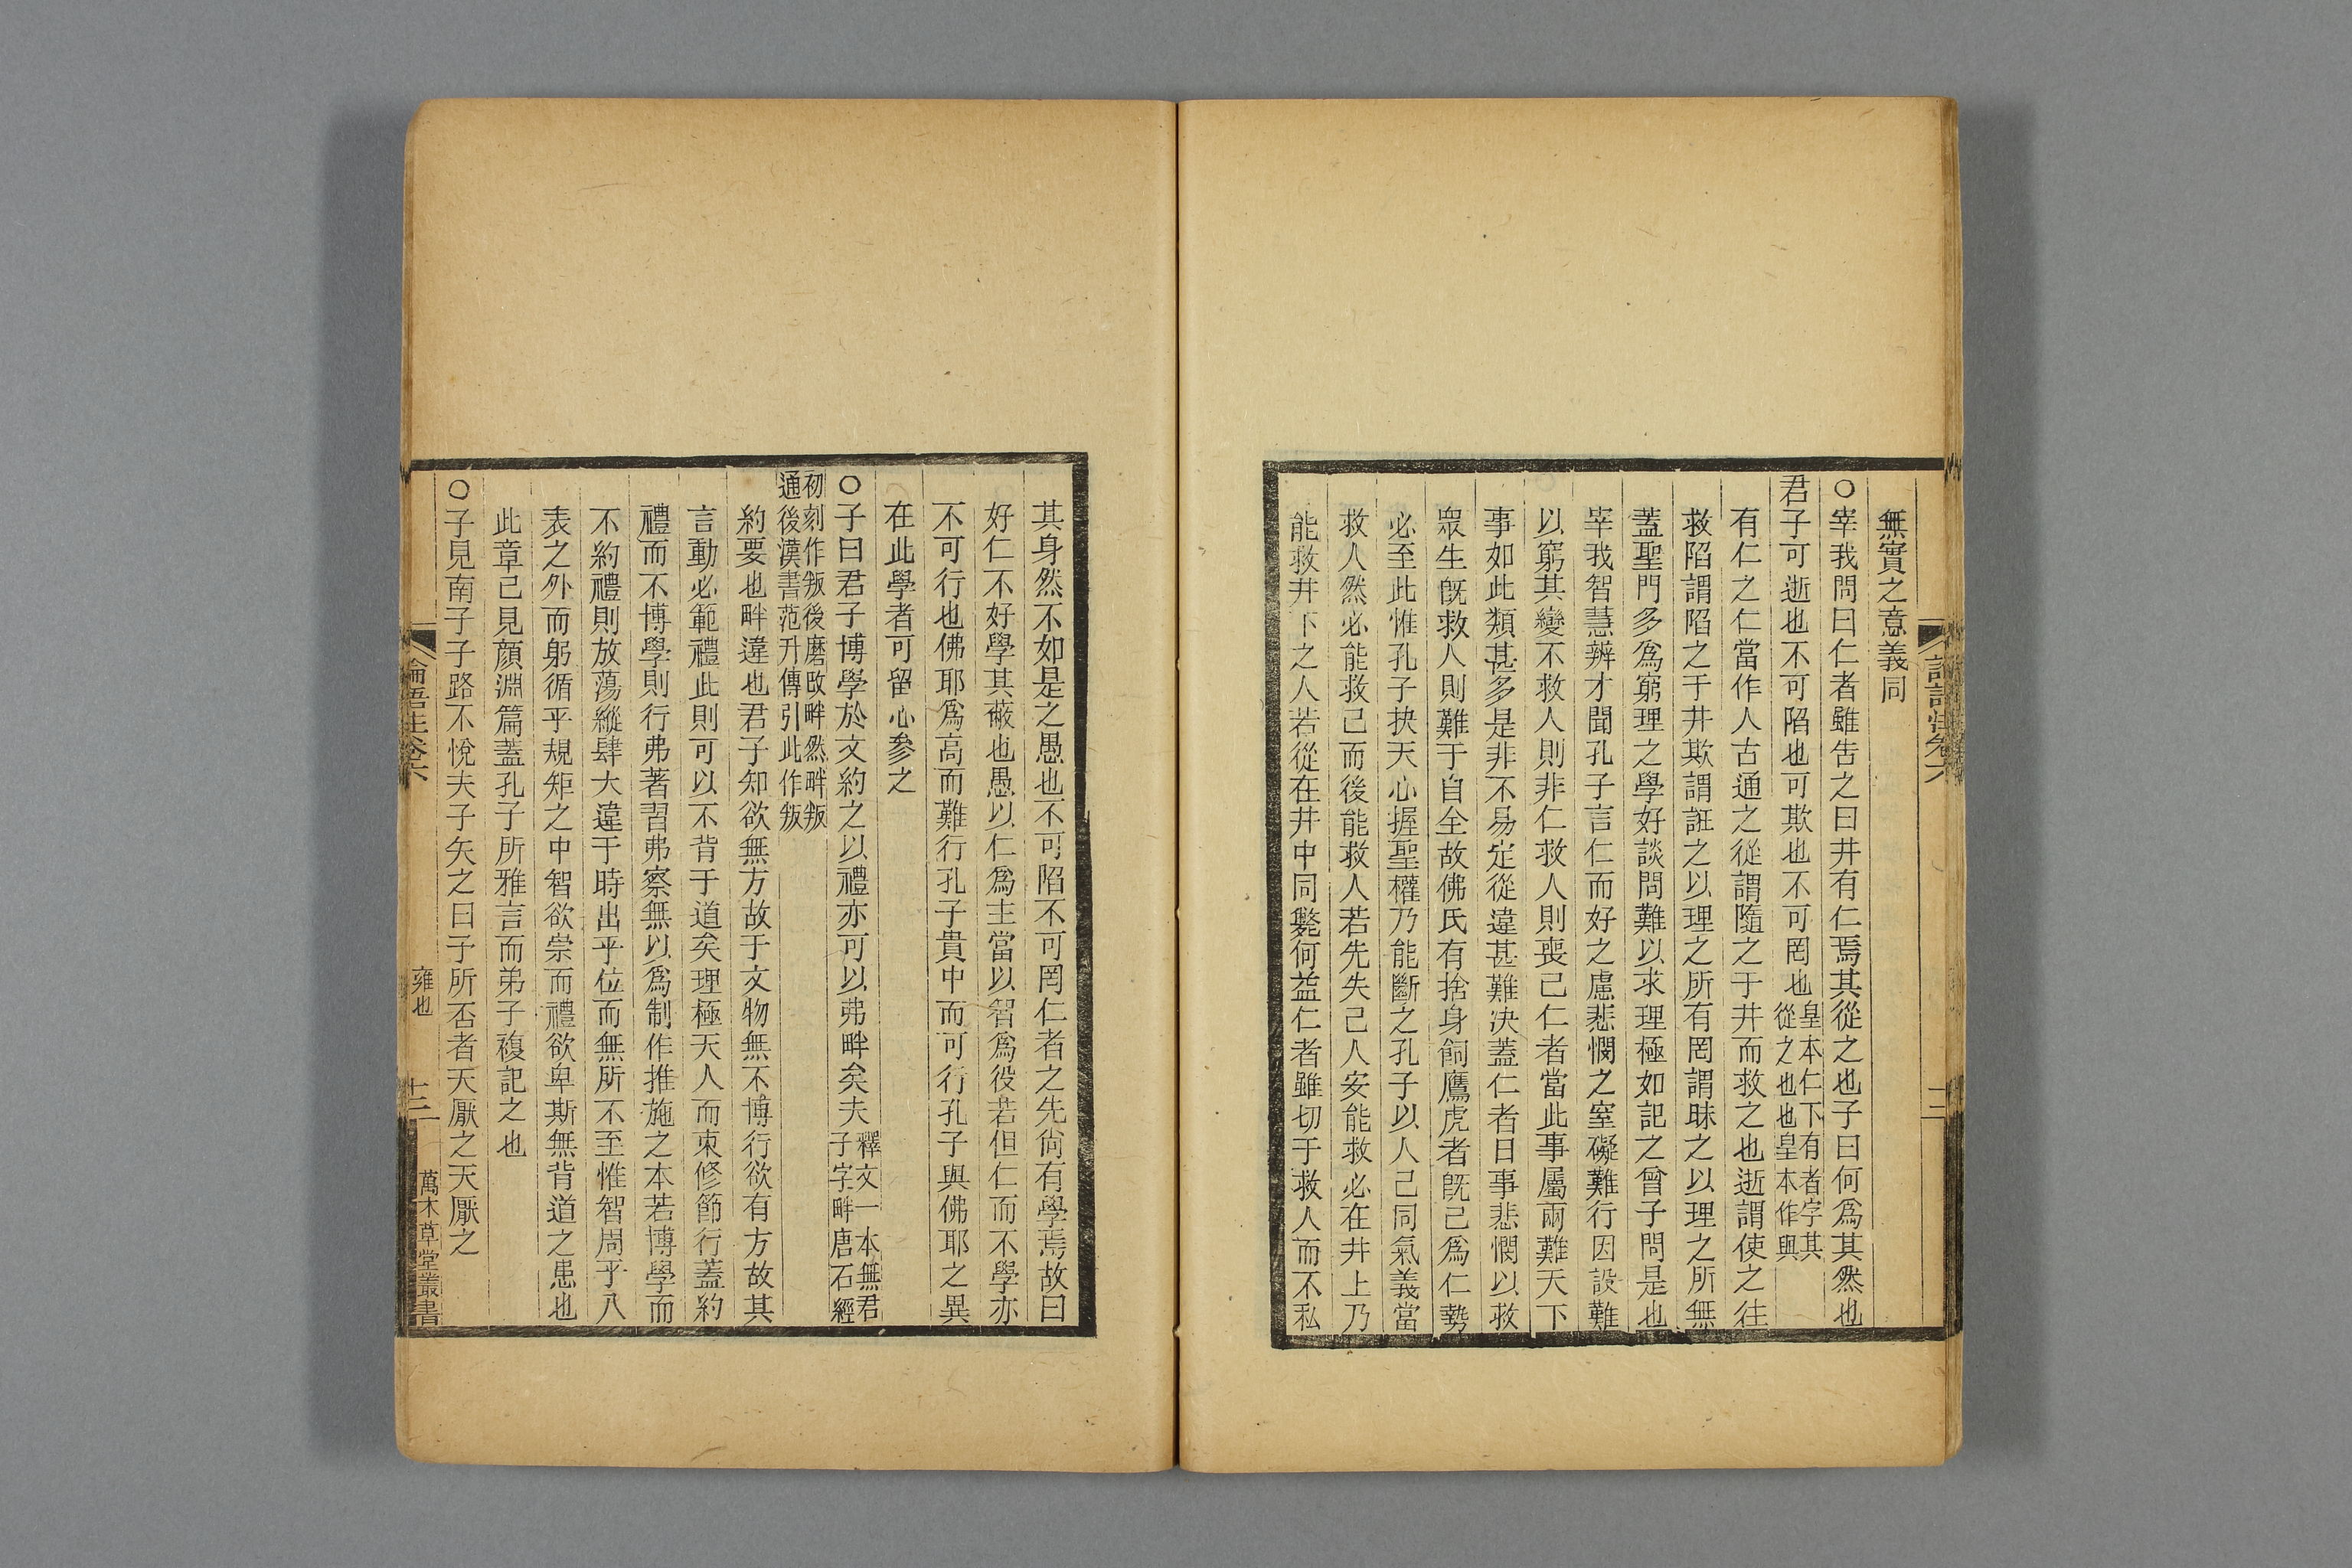 無實之意義同
○宰我問曰仁者雖告之曰井有仁焉其從之也子曰何爲其然也
君子可逝也不可陷也可欺也不可罔也皇本仁下有者字其從之也也皇本作與
有仁之仁當作人古通之從謂隨之于井而救之也逝謂使之往
救陷謂陷之于井欺謂誑之以理之所有罔謂昧之以理之所無
蓋聖門多爲窮理之學好談問難以求理極如記之曾子問是也
宰我智慧辨才聞孔子言仁而好之慮悲憫之窒礙難行因設難
以窮其變不救人則非仁救人則喪己仁者當此事屬兩難天下
事如此類甚多是非不易定從違甚難决蓋仁者日事悲憫以救
眾生旣救人則難于自全故佛氏有捨身飼鷹虎者旣己爲仁勢
必至此惟孔子抉天心握聖權乃能斷之孔子以人己同氣義當
救人然必能救己而後能救人若先失己人安能救必在井上乃
能救井下之人若從在井中同斃何益仁者雖切于救人而不私
其身然不如是之愚也不可陷不可罔仁者之先尙有學焉故曰
好仁不好學其蔽也愚以仁爲主當以智爲役若但仁而不學亦
不可行也佛耶爲高而難行孔子貴中而可行孔子與佛耶之異
在此學者可留心參之
○子曰君子博學於文約之以禮亦可以弗畔矣夫釋文一本無君子字畔唐石經
初刻作叛後磨改畔然畔叛通後漢書范升傳引此作叛
約要也畔違也君子知欲無方故于文物無不博行欲有方故其
言動必範禮此則可以不背于道矣理極天人而束修節行蓋約
禮而不博學則行弗著習弗察無以爲制作推施之本若博學而
不約禮則放蕩縱肆大違于時出乎位而無所不至惟智周乎八
表之外而躬循乎規矩之中智欲崇而禮欲卑斯無背道之患也
此章已見顏淵篇蓋孔子所雅言而弟子複記之也
○子見南子子路不悅夫子矢之曰予所否者天厭之天厭之
論語注卷六
雍也
十三
萬木草堂叢書